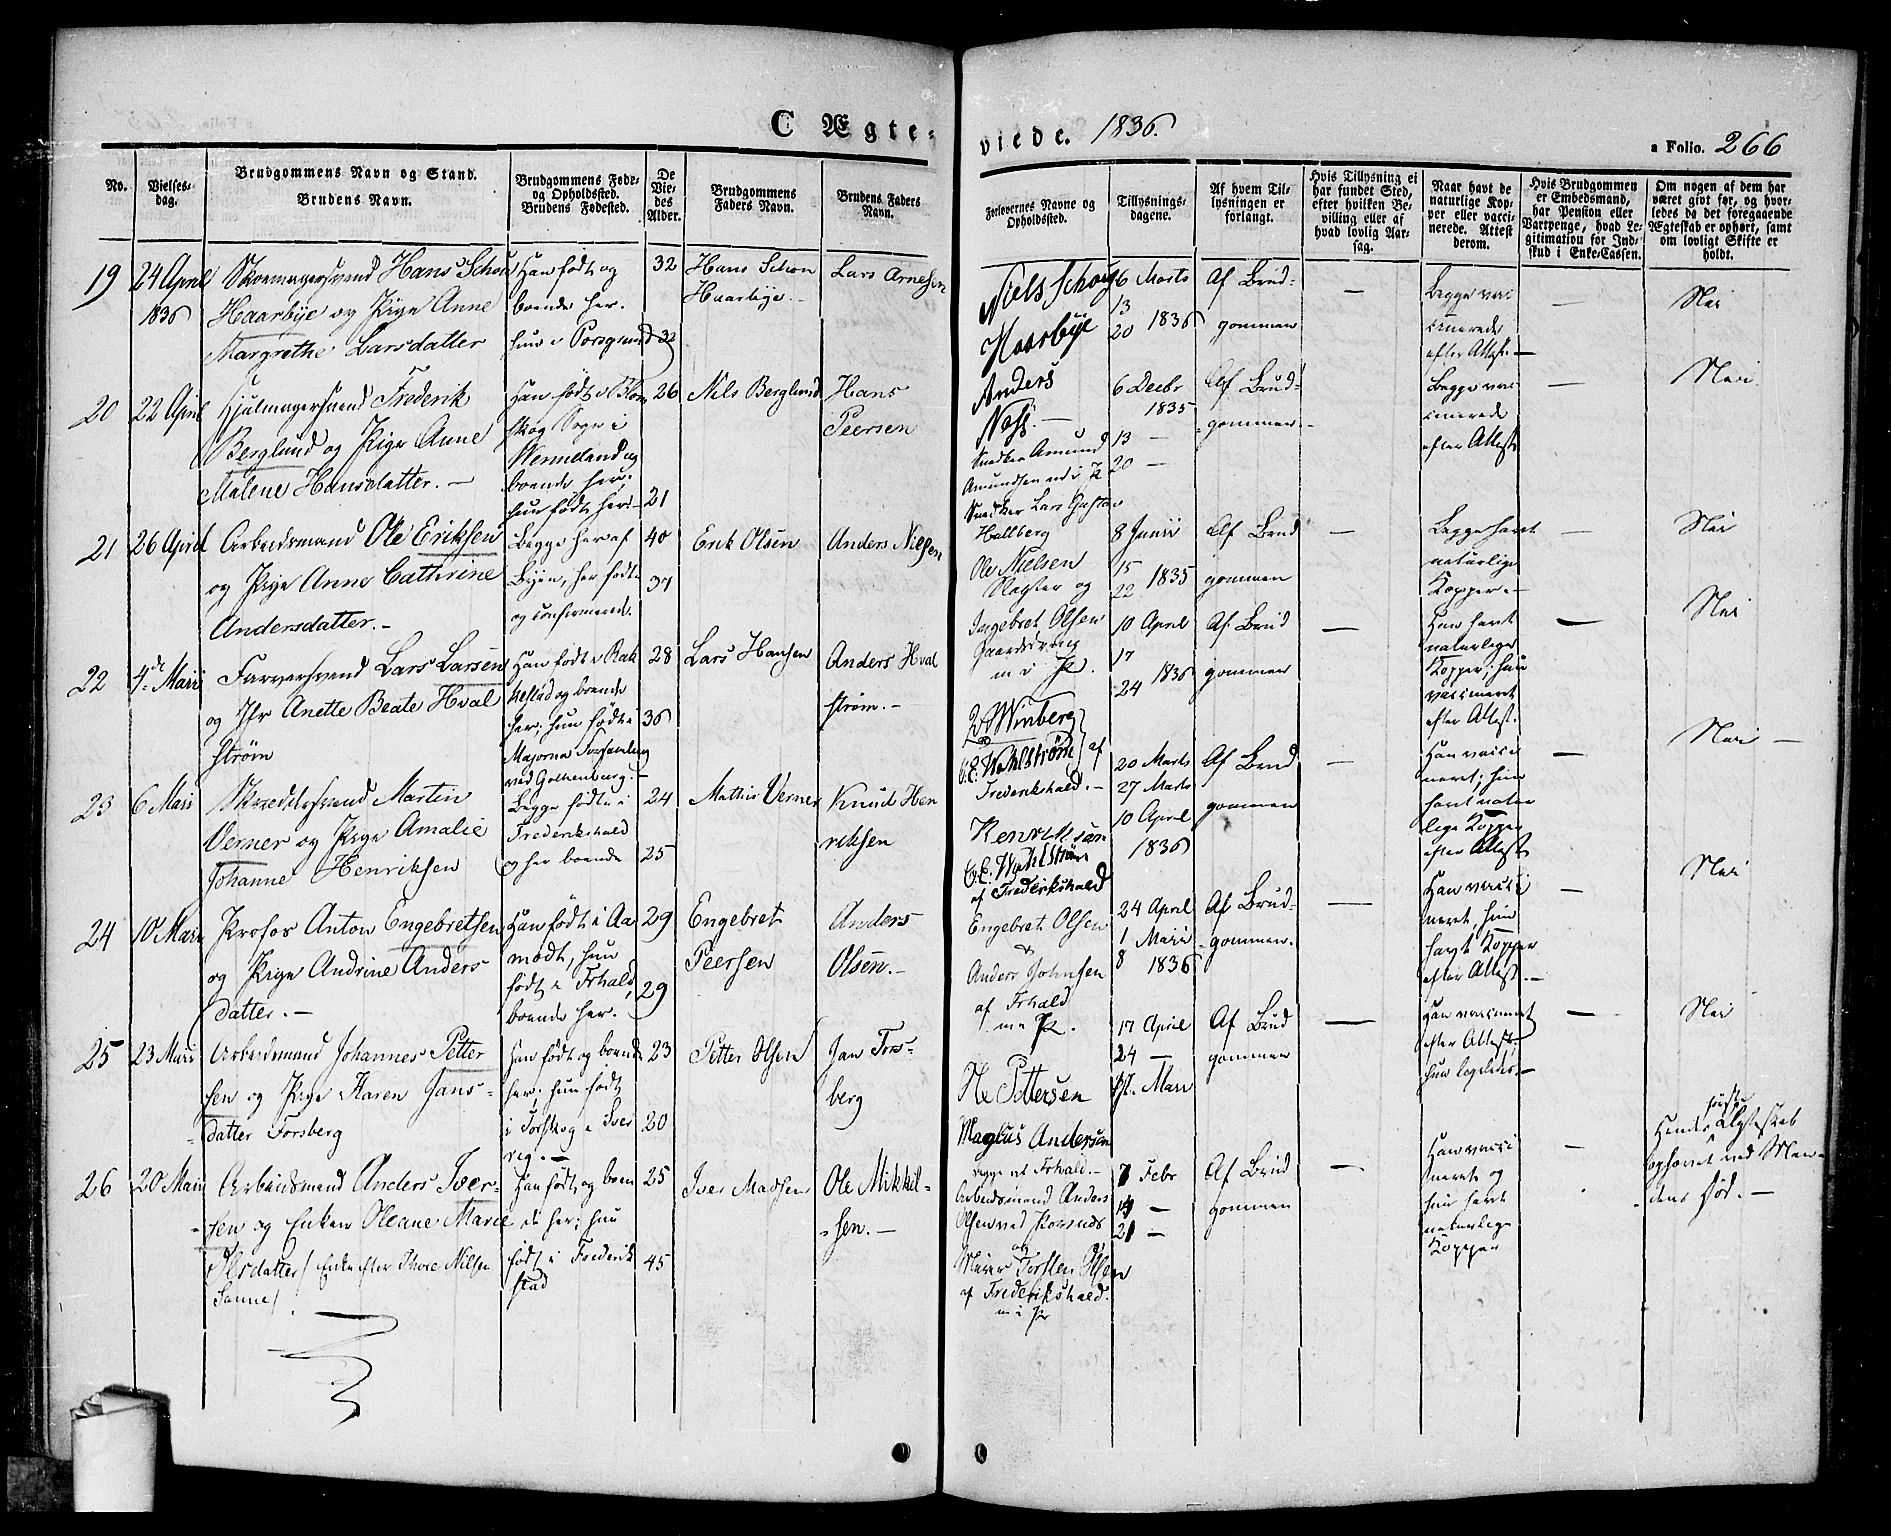 C Ægte-
viede. 1836.
a Folio. 266
No.
Vielses-
dag.
Brudgommens Navn og Stand.
Brudens Navn.
Brudgommens Føde-
og Opholdssted.
Brudens Fødested.
De
Vie-
des
Alder.
Brudgommens
Faders Navn.
Brudens Faders
Navn.
Forlovernes Navne og
Opholdssted.
Tillysnings-
dagene.
Af hvem Til-
lysningen er
forlangt.
Hvis Tillysning ei
har fundet Sted,
efter hvilken Be-
villing eller af
hvad lovlig Aar-
sag.
Naar havt de
naturlige Kop-
per eller vacci-
nerede. Attest
derom.
Hvis Brudgommen
er Embedsmand,
har Pension eller
Vartpenge, hvad Le-
gitimation for Ind-
skud i Enke-Cassen.
Om nogen af dem har
været givt før, og hvor-
ledes da det foregaaende
Ægteskab er ophørt, samt
om lovligt Skifte er
holdt.
19
24 April
1836
Skomagersvend Hans Schou
Haarbye og Pige Anne
Margrethe Larsdatter
Han født og
boende her.
hun i Porsgrund
32
32
Hans Schou
Haarbye.-
Lars Arnesen
Niels Schoug
Haarbye
6 Marts
13
20 1836
Af Brud-
gommen
—
Begge vac
cinerede
efter Attest.—
—
Nei
20
22 April
Hjulmagersvend Frederik
Berglund og Pige Anne
Malene Hansdatter.—
Han født i Blom
skog Sogn i
Wermeland og
boende her.
hun født her.-
26
21
Nils Berglund
Hans
Peersen
Anders
Næss.—
Snedker Amund
Amundsen
Snedker Lars Gustav
Hallberg
6 Decbr
1835
13 —
20 —
Af Brud-
gommen.-
Begge vac
cinerede
efter Attest
—
Nei.
21
26 April
Arbeidsmand Ole Eriksen
og Pige Anne Cathrine
Andersdatter.-
Begge her af
Byen, her født
og confirmered.
40
37
Erik Olsen
Anders Nilsen
Ole Nielsen
Slagter og
Ingebret Olsen
Gaardsdreng
m i P.
8 Junii
15
22 1835
Af Brud
gommen
—
Begge havt
naturlige
Kopper.-
—
Nei
22
4de Maii
Farversvend Lars Larsen
og Jfr Anette Beate Hval
strøm
Han født i Rak
kestad og boende
her; hun født i
Majorna Forsamling
ved Gothenburg.-
28
36
Lars Hansen
Anders Hval
strøm.-
Winberg
C.E. Wahlstrøm af
Frederikshald.-
10 April
17
24 1836
Af Brud
gommen
—
Han havt
naturlige
Kopper; hun
vaccineret
efter Attest.
—
Nei
23
6 Mai
Skrædersvend Martin
Verner og Pige Amalie
Johanne Henriksen
Begge fødte i
Frederikshald
og her boende
24
25
Mathis Verner
Knud Hen
riksen
Henriksen
C.E. Wahlstrøm
af Frederikshald
20 Marts
27 Marts
10 April
1836
Af Brud
gommen
—
Han vacci
neret; hun
havt natur
lige Kopper
efter Attest
—
Nei —
24
10 Mai
Profos Anton Engebretsen
og Pige Andrine Anders
datter.—
Han født i Aa
modt, hun
født i Frhald,
boende her.
29
29
Engebret
Peersen
Anders
Olsen.-
Engebret Olsen
&
Anders Johnsen
af Frhald
m i P.
24 April
1 Maii
8 1836
Af Brud-
gommen.
—
Han vacci
neret, hun
havt Kopper
efter Attest.—
—
Nei
25
23 Mai
Arbeidsmand Johannes Petter
sen og Pige Karen Jans-
datter Forsberg
Han født og boende
her; hun født
i Torskog i Sver
rig.—
23
20
Petter Olsen
Jan Fors-
berg
Petersen
Magnus Andersen
begge af Frhald.-
17 April
24 —
1st. Mai
Af Brud
gommen
—
Han vaccineret
efter Attest;
hun ligeledes.-
—
Nei
26
20 Mai
Arbeidsmand Anders Iver-
sen og Enken Oleane Marie
Olsdatter/ Enke efter Thore Nilsen
Sanne/.
Han født og boen
de her; hun
født i Frederik
stad
25
45
Iver Madsen
Ole Mikkel-
sen.—
Arbeidsmand Anders
Olsen ved
og
Murer Torsten Olsen
af Frederikshald.
m i P
7 Febr
14 —
21 —
Af Brud
gommen
—
Han vacci
neret og
hun havt
naturlige
Kopper
—
første
Hendes Ægteskab
ophævet ved Man-
dens Død.—